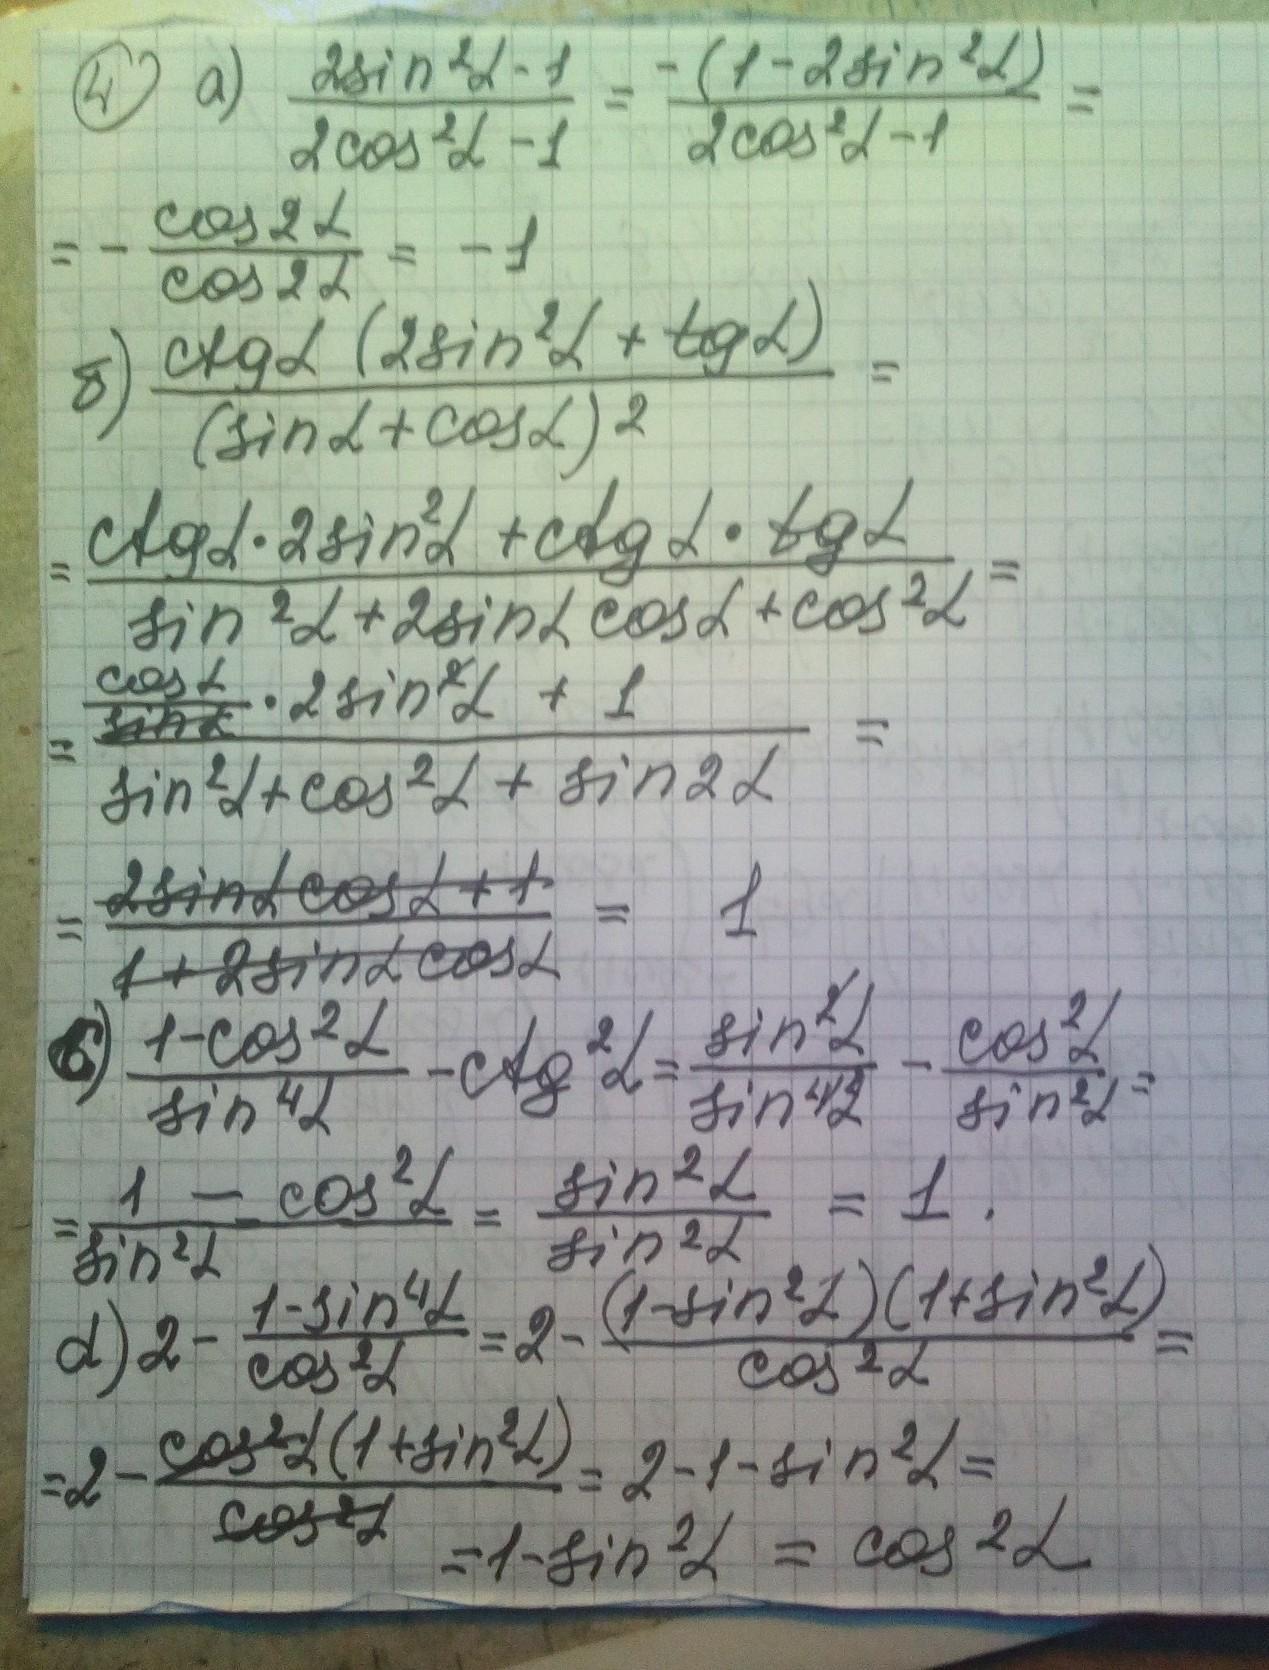 ④ а) (2sin²α - 1)/(2cos²α - 1) = -(1 - 2sin²α)/(2cos²α - 1) =
= - cos2α/cos2α = -1
б) ctgα (2sin²α + tgα)/(sinα + cosα)² =
= (ctgα · 2sin²α + ctgα · tgα)/(sin²α + 2sinα cosα + cos²α) =
= (cosα/sinα · 2sin²α + 1)/(sin²α + cos²α + sin2α) =
= (2sinα cosα + 1)/(1 + 2sinα cosα) = 1
в) (1 - cos²α)/sin⁴α - ctg²α = sin²α/sin⁴α - cos²α/sin²α =
= (1 - cos²α)/sin²α = sin²α/sin²α = 1.
d) 2 - (1 - sin⁴α)/cos²α = 2 - (1 - sin²α)(1 + sin²α)/cos²α =
= 2 - cos²α(1 + sin²α)/cos²α = 2 - 1 - sin²α =
= 1 - sin²α = cos²α